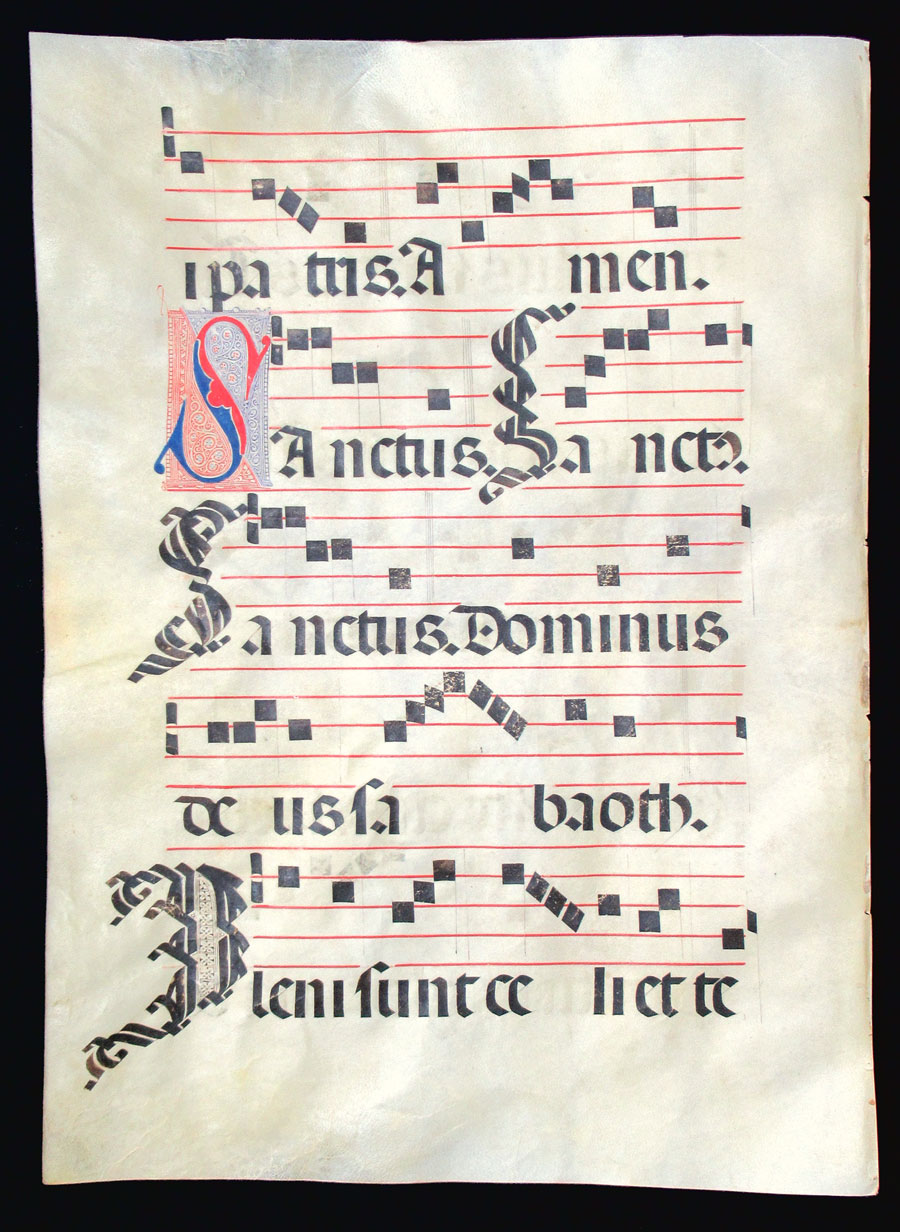 i pa tris. A men.
SAnctus. Sa nctꝰ.
Sa nctus. Dominus
de us sa baoth.
Pleni sunt ce li et te